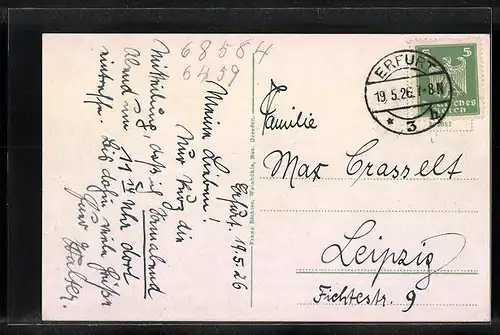 68584
6459
Erfurt, 19.5.26
Meine Lieben!
Nur kurz die
Mitteilung, daß ich Sonnabend
Abend um 11 Uhr dort
eintreffe. Bis dahin viele Grüße
Euer
Walter.
Franz Bechler, Werkstätte, Bez. Dresden.
ERFURT
19.5.26.7-8.N
* 3 h
5 5
Deutsches
Reich
Familie
Max Crasselt
Leipzig
Fichtestr. 9